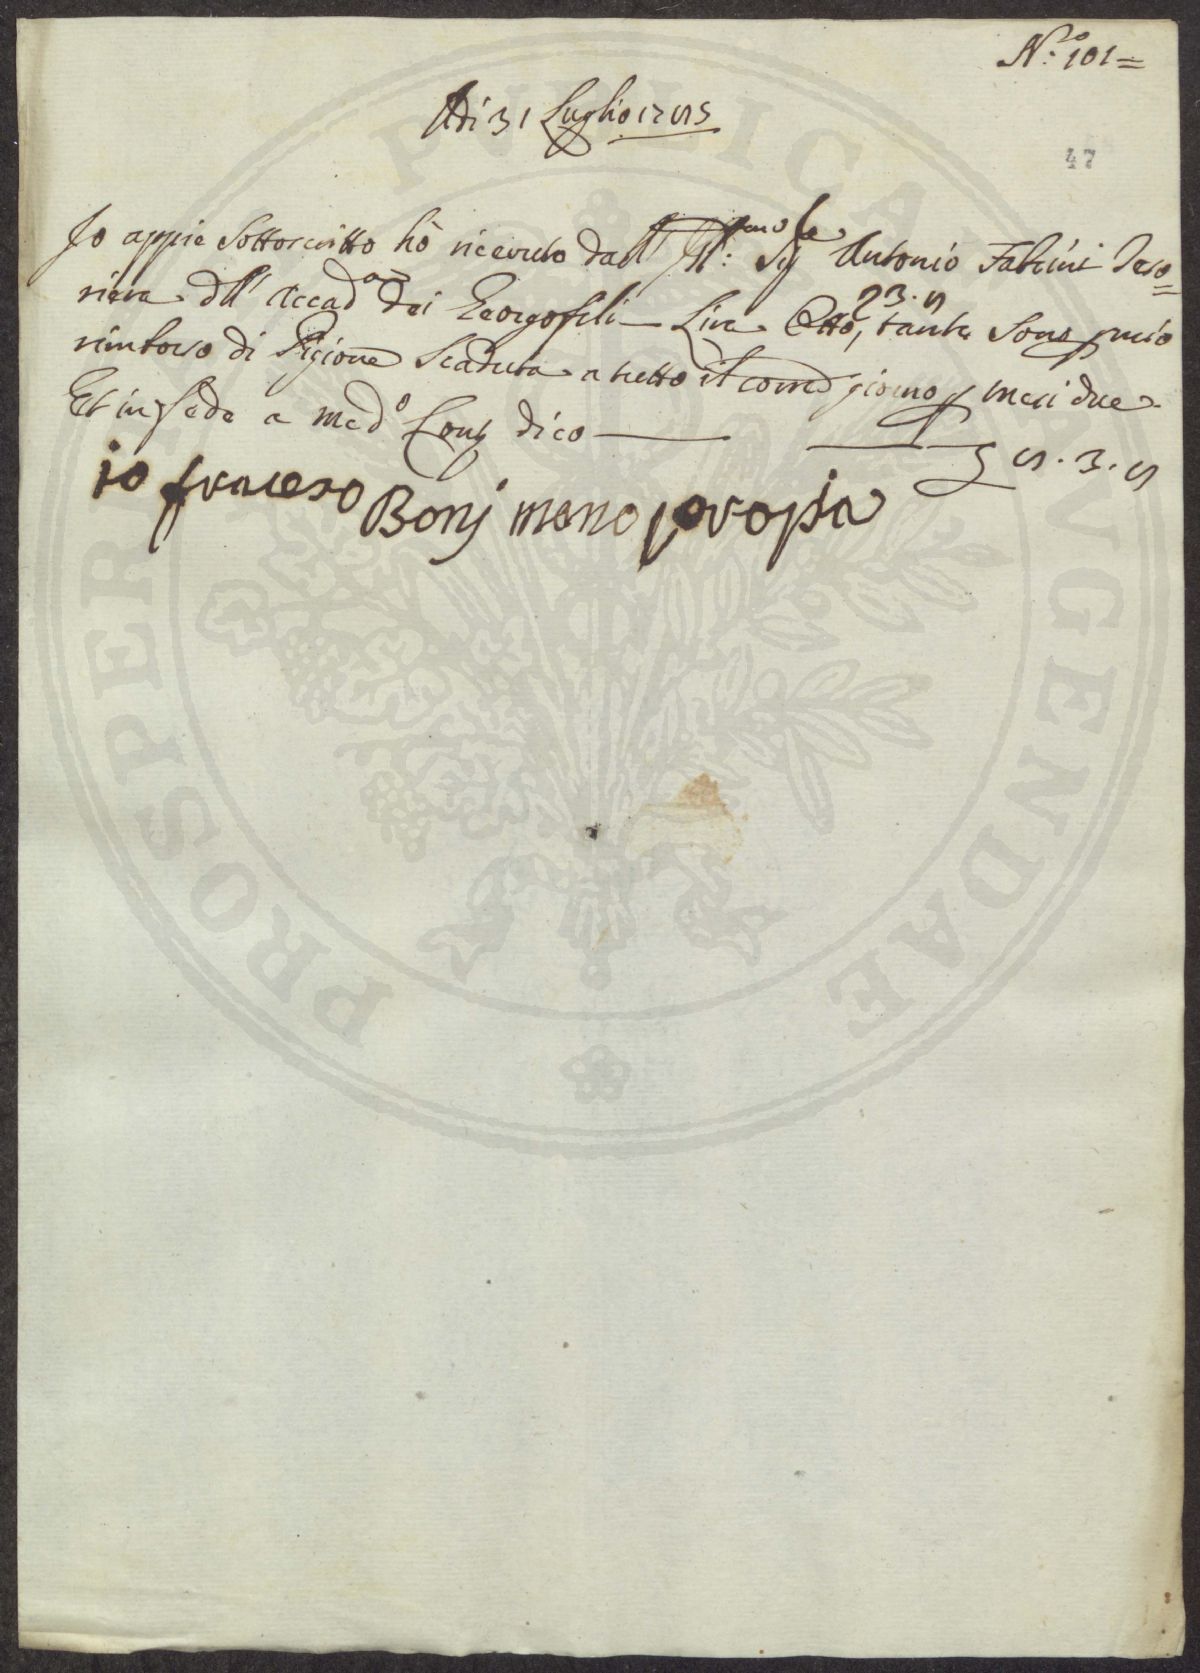 N.º 101=
Adì 31 Luglio 1785
47
Io appiè Sottoscritto hò ricevuto dall' Ill:mo Sig.re Antonio Fabrini Teso=
riere dll' Accad.a dei Georgofili — Lire Otto, 3. 8 tante Sono p mio
rimborso di Pigione Scaduta a tutto il corr.e giorno p mesi due
Et in fede a med.o Cont.i dico —— —— £ 8. 3. 8
io franceso Bonj mano propia
PROSPERITATI PUBLICAE AUGENDAE